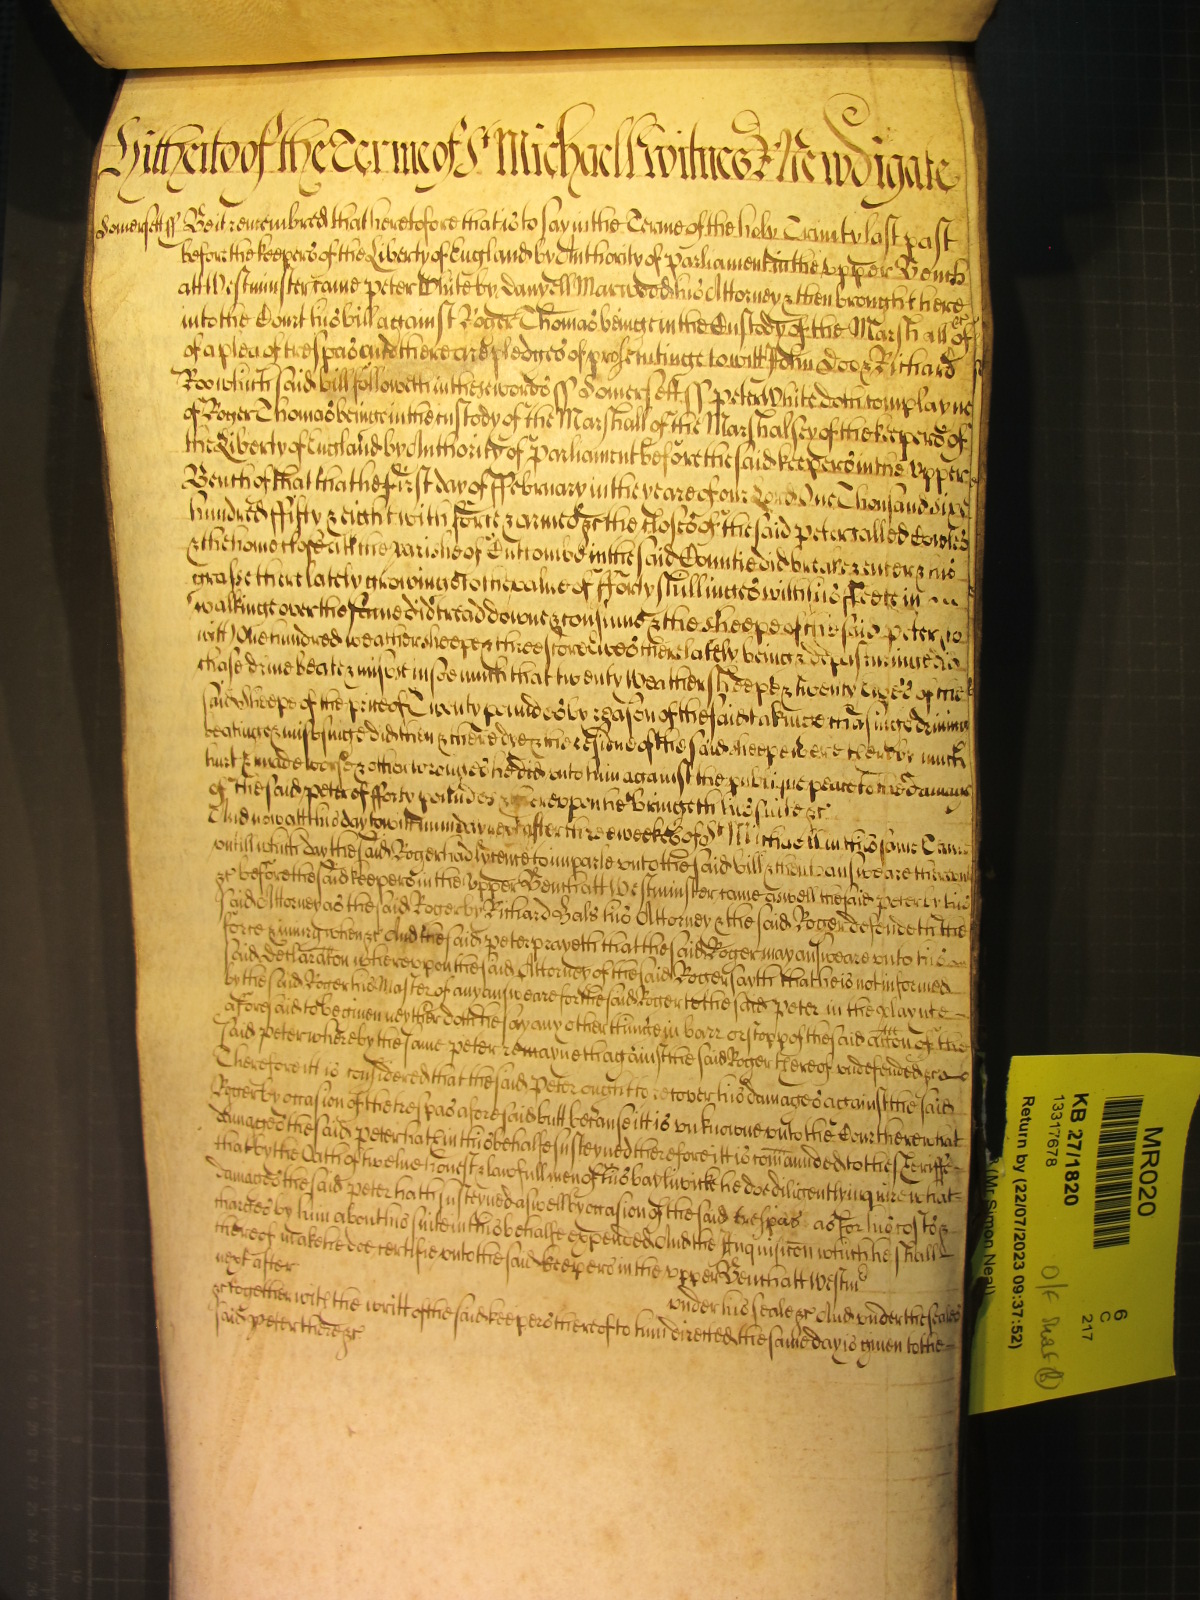 Hitherto of the Terme of St Michaell witnes R Newdigate
Somersett ss Be it remembred that heretofore that is to say in the Terme of the holy Trinity last past
before the keepers of the Liberty of England by Authority of Parliament in the Upper Bench
att Westminster came Peter White by Danyell Marwood his Attorney & then brought here
into the Court his bill against Roger Thomas beinge in the Custody of the Marshall &c of
of a plea of trespas and there are pledges of prosecutinge to witt John Doo & Richard
Roo which said bill followeth in these words ss Somersett ss Peter White doth complayne
of Roger Thomas beinge in the custody of the Marshall of the Marshalsey of the keepers of
the Liberty of England by Authority of Parliament before the said keepers in the Upper
Bench of that that he the first day of ffebruary in the yeare of our Lord One Thousand sixe
hundred ffifty & eight with force & armes &c the closes of the said Peter called
& the home close att the parishe of Cutcombe in the said Countie did breake & enter & his
grasse there lately growinge to the value of fforty shillinges with his ffeete in
walkinge over the same did tread downe & consume & the sheepe of the said Peter to
witt One hundred weather sheepe & three score Ewes there lately beinge & depasturinge did
chase drive beate & misuse insoemuch that twenty weather sheepe & twenty Ewes of the
said sheepe of the price of Twenty poundes by reason of the said takinge chasinge drivinge
beatinge & misusinge did then & there dye & the residue of the said sheepe were thereby much
hurt & made worse & other wronges he did unto him against the publique peace to the damage
of the said Peter of fforty poundes & thereupon he bringeth his suite &c
And now att this day to witt munday next after three weekes of St Michaell in this same Terme
untill which day the said Roger had lycence to imparle unto the said bill & then to answeare thereunto
&c before the said keepers in the Upper Bench att Westminster came aswell the said Peter by his
said Attorney as the said Roger by Richard Hals his Attorney & the said Roger defendeth the
force & iniury when &c And the said Peter prayeth that the said Roger may answeare unto his
said Declaracon whereupon the said Attorney of the said Roger sayth that he is not informed
by the said Roger his Master of any answeare for the said Roger to the said Peter in the playnte
aforesaid to be given neyther doth he say any other thinge in barr or stopp of the said accon of the
said Peter whereby the same Peter remayneth against the said Roger thereof undefended &c
Therefore it is considered that the said Peter ought to recover his damages against the said
Roger by occasion of the trespas aforesaid butt because it is unknowne unto the Court here what
damages the said Peter hath in this behalfe susteyned therefore it is comaunded to the Sheriffe
that by the Oath of twelve honest & lawfull men of his baylywicke he doe diligently inquire what
damages the said Peter hath susteyned aswell by occasion of the said trespas as for his costs &
charges by him about his suite in this behalfe expended And the Inquisicon which he shall
thereof make he doe certifie unto the said keepers in the Upper Bench att Westmr
next after under his seale &c And under the seales
&c together with the writt of the said keepers thereof to him directed the same day is given to the
said Peter there &c
MR020
6
C
217
KB 27/1820
13317678
Return by (22/07/2023 09:37:52)
(Mr Simon Neal)